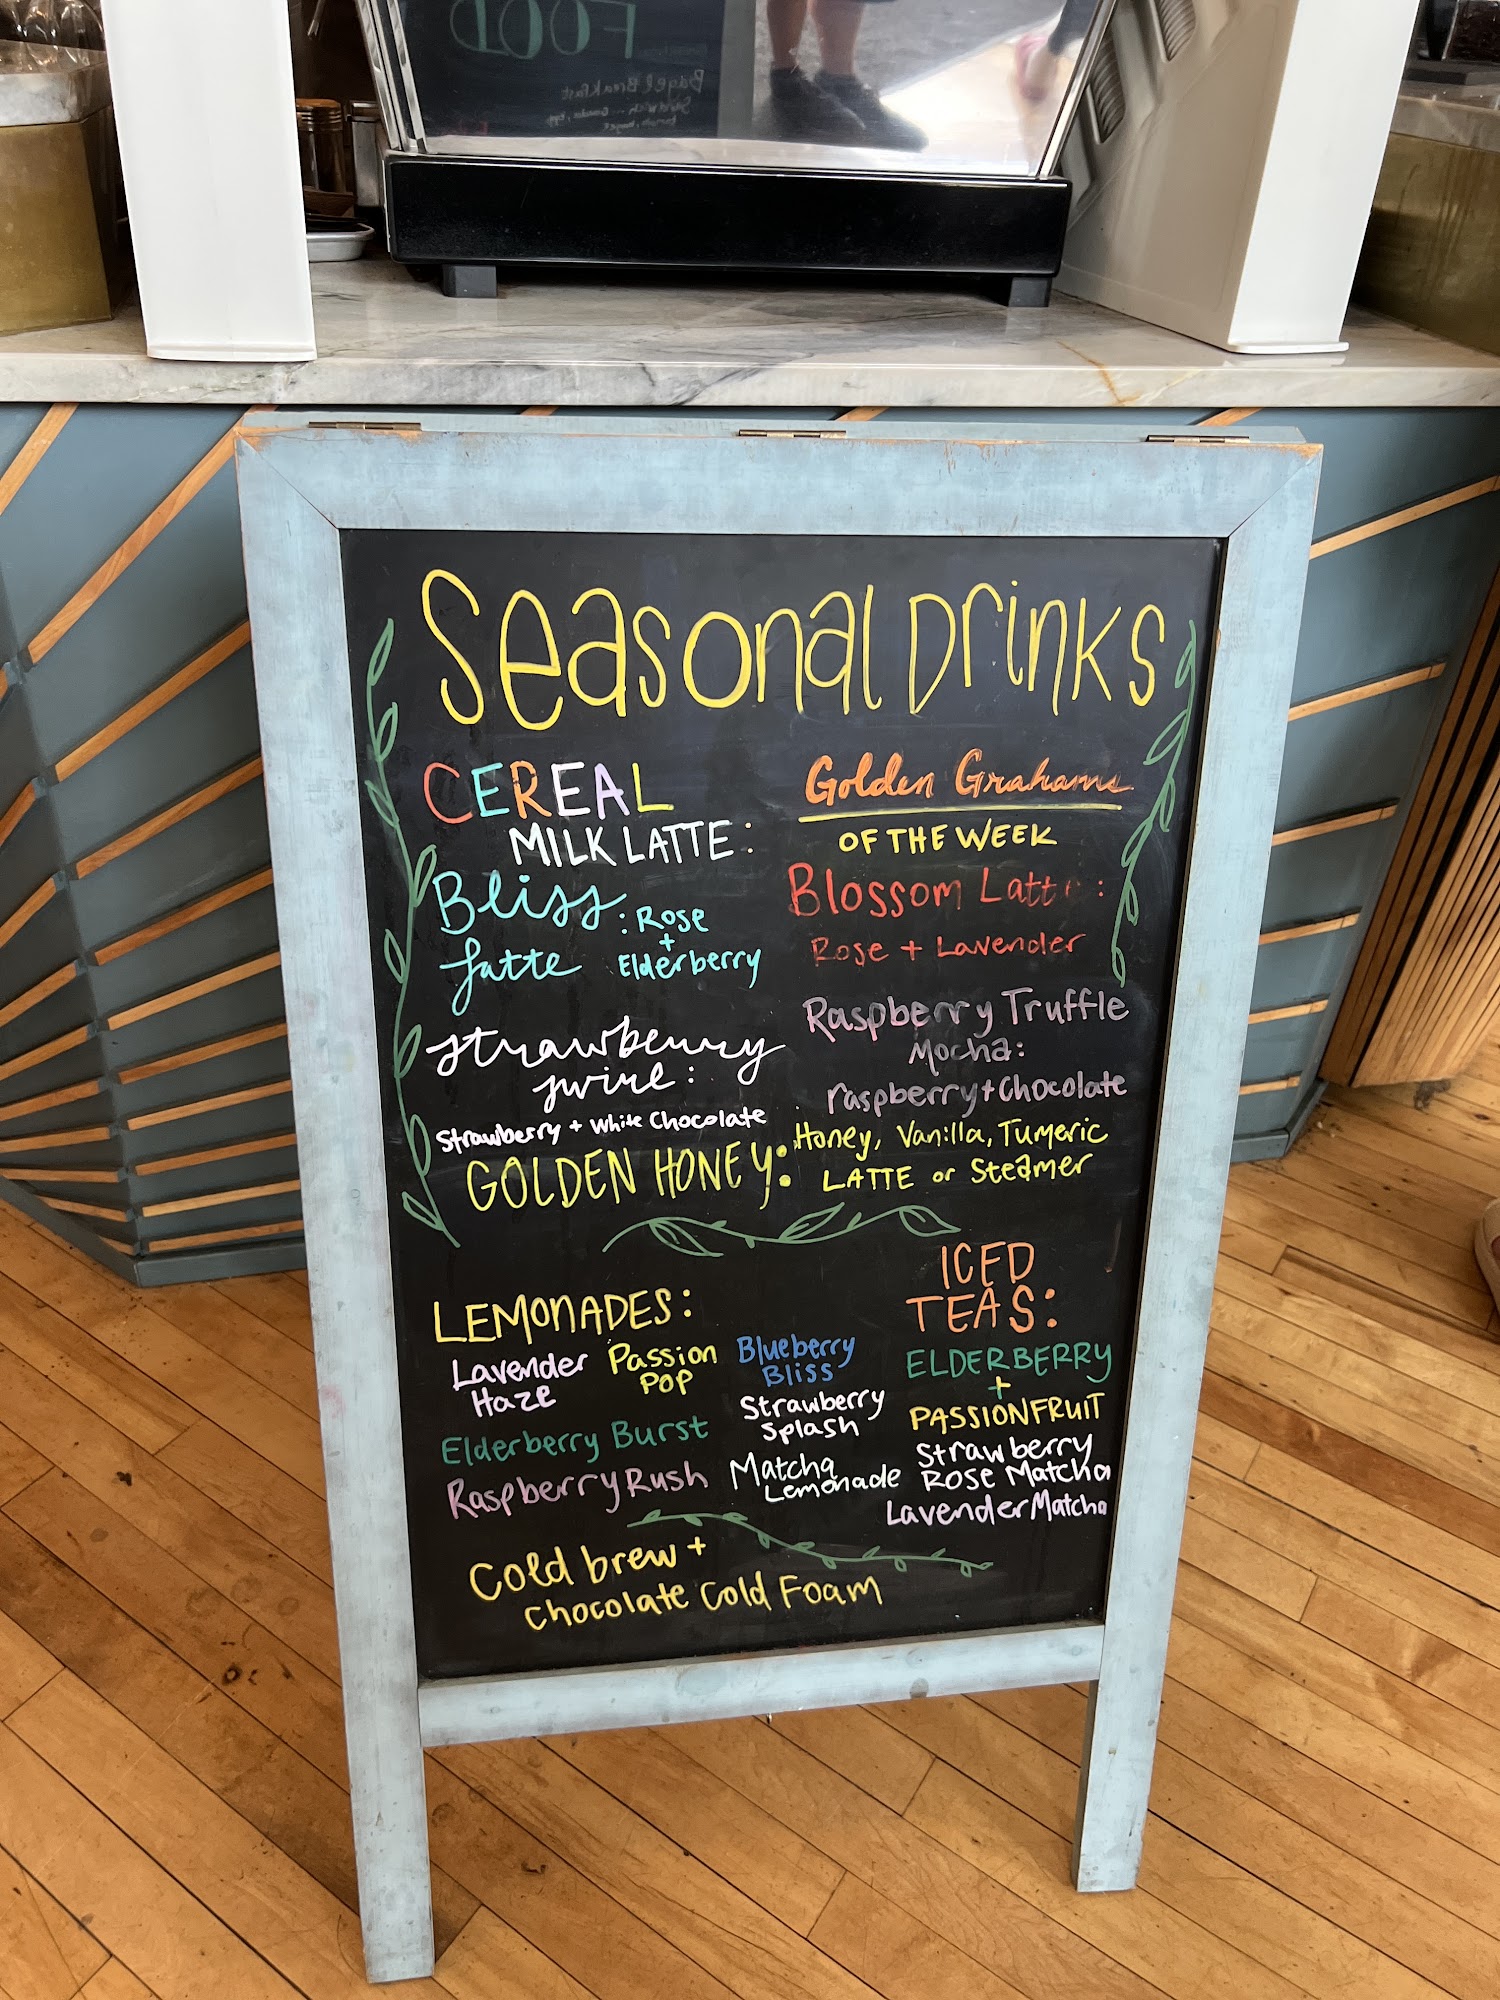 FOOD
Bagel Breakfast
Seasonal Drinks
CEREAL
MILK LATTE:
Golden Grahams
OF THE WEEK
Bliss
Latte
: Rose
+
Elderberry
Blossom Latte:
Rose + Lavender
Strawberry
Swirl:
Strawberry + White Chocolate
Raspberry Truffle
Mocha:
raspberry + Chocolate
GOLDEN HONEY:
Honey, Vanilla, Tumeric
LATTE or Steamer
LEMONADES:
Lavender
Haze
Passion
POP
Blueberry
Bliss
Elderberry Burst
Strawberry
Splash
Raspberry Rush
Matcha
Lemonade
ICED
TEAS:
ELDERBERRY
+
PASSIONFRUIT
Strawberry
ROSE Matcha
Lavender Matcha
Cold brew +
Chocolate Cold Foam